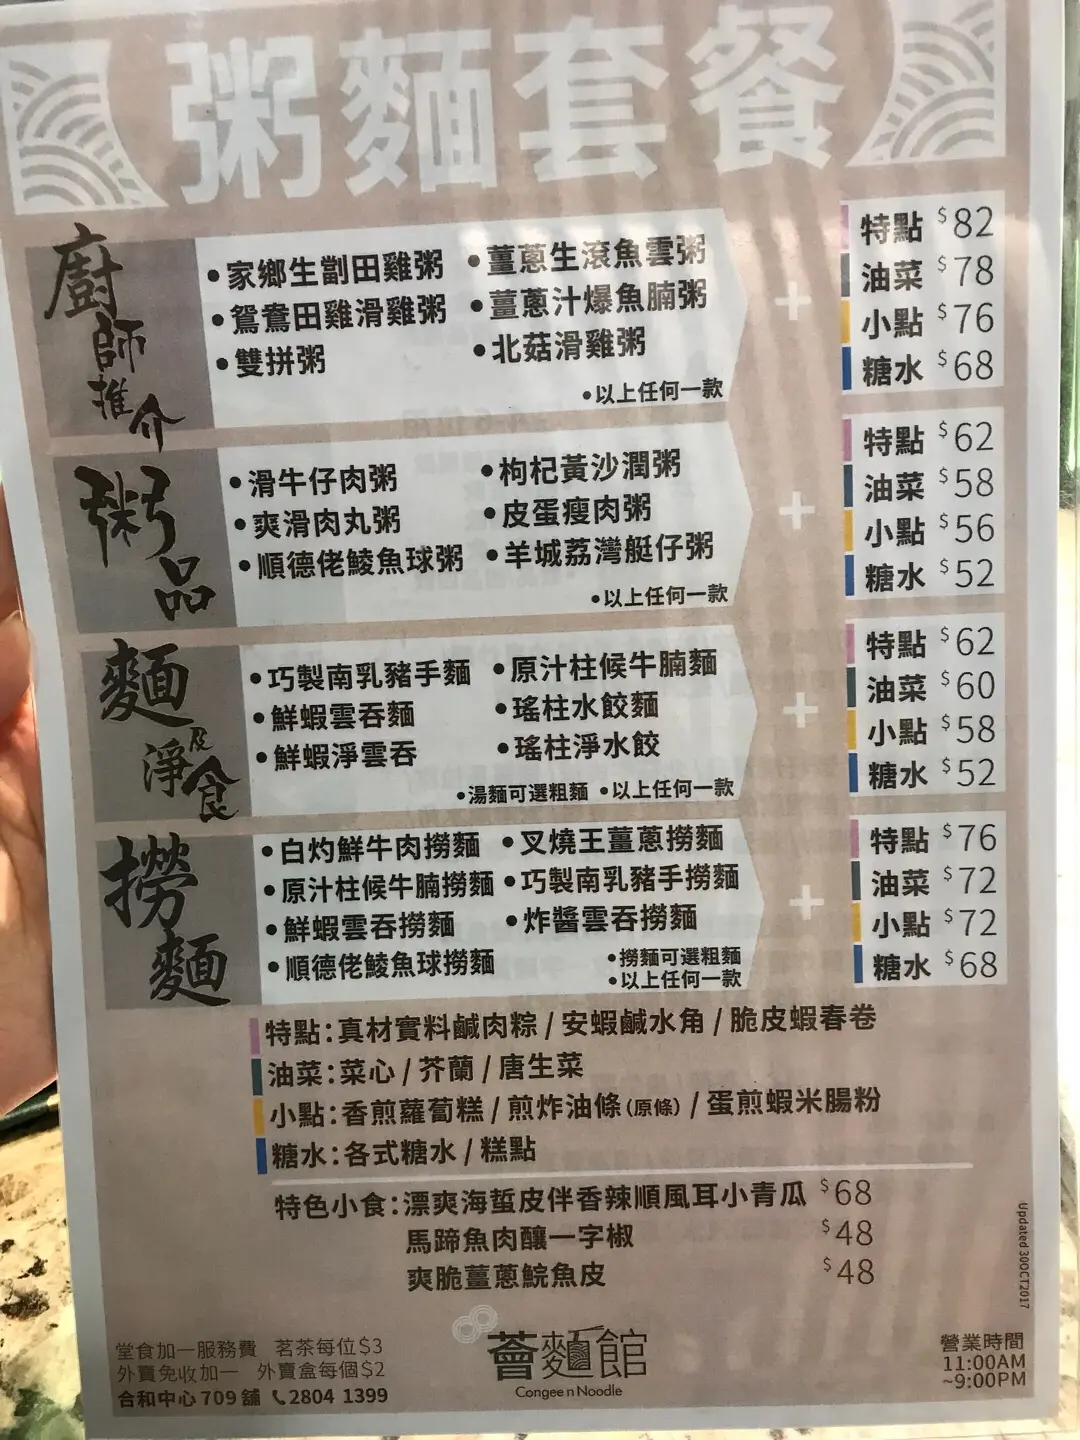 粥麵套餐
廚師推介
• 家鄉生劏田雞粥 • 薑蔥生滾魚雲粥
• 鴛鴦田雞滑雞粥 • 薑蔥汁爆魚腩粥
• 雙拼粥 • 北菇滑雞粥
• 以上任何一款
+
特點 $82
油菜 $78
小點 $76
糖水 $68
粥品
• 滑牛仔肉粥 • 枸杞黃沙潤粥
• 爽滑肉丸粥 • 皮蛋瘦肉粥
• 順德佬鯪魚球粥 • 羊城荔灣艇仔粥
• 以上任何一款
+
特點 $62
油菜 $58
小點 $56
糖水 $52
麵及淨食
• 巧製南乳豬手麵 • 原汁柱候牛腩麵
• 鮮蝦雲吞麵 • 瑤柱水餃麵
• 鮮蝦淨雲吞 • 瑤柱淨水餃
• 湯麵可選粗麵 • 以上任何一款
+
特點 $62
油菜 $60
小點 $58
糖水 $52
撈麵
• 白灼鮮牛肉撈麵 • 叉燒王薑蔥撈麵
• 原汁柱候牛腩撈麵 • 巧製南乳豬手撈麵
• 鮮蝦雲吞撈麵 • 炸醬雲吞撈麵
• 順德佬鯪魚球撈麵
• 撈麵可選粗麵
• 以上任何一款
+
特點 $76
油菜 $72
小點 $72
糖水 $68
特點：真材實料鹹肉粽 / 安蝦鹹水角 / 脆皮蝦春卷
油菜：菜心 / 芥蘭 / 唐生菜
小點：香煎蘿蔔糕 / 煎炸油條(原條) / 蛋煎蝦米腸粉
糖水：各式糖水 / 糕點
特色小食：漂爽海蜇皮伴香辣順風耳小青瓜 $68
馬蹄魚肉釀一字椒 $48
爽脆薑蔥鯇魚皮 $48
Updated 30OCT2017
堂食加一服務費 茗茶每位$3
外賣免收加一 外賣盒每個$2
合和中心 709 舖 2804 1399
薈麵館
Congee n Noodle
營業時間
11:00AM
~9:00PM